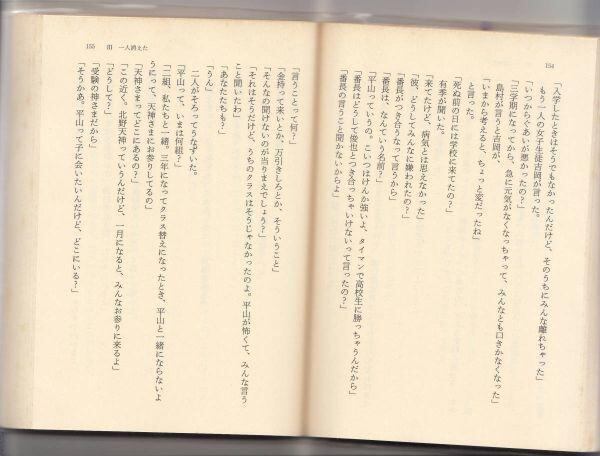 154
「入学したときはそうでもなかったんだけど、そのうちにみんな離れちゃった」
もう一人の女子生徒吉岡が言った。
「いつからぐあいが悪かったの？」
「三学期になってから、急に元気がなくなっちゃって、みんなとも口きかなくなった」
島村が言うと吉岡が、
「いまから考えると、ちょっと変だったね」
と言った。
「死ぬ前の日には学校に来てたの？」
有季が聞いた。
「来てたけど、病気とは思えなかった」
「彼、どうしてみんなに嫌われたの？」
「番長がつき合うなって言うから」
「番長は、なんていう名前？」
「平山っていうの。こいつはけんか強いよ、タイマンで高校生に勝っちゃうんだから」
「番長はどうして俊也とつき合っちゃいけないって言ったの？」
「番長の言うこと聞かないからよ」
155 Ⅲ 一人消えた
「言うことって何？」
「金持って来いとか、万引きしろとか、そういうこと」
「そんなの聞けないのが当りまえでしょう？」
「それはそうだけど、うちのクラスはそうじゃなかったのよ。平山が怖くて、みんな言う
こと聞いたわ」
「あなたたちも？」
「うん」
二人がそろってうなずいた。
「平山って、いまは何組？」
「二組、私たちと一緒。三年になってクラス替えになったとき、平山と一緒にならないよ
うにって、天神さまにお参りしてるの」
「天神さまってどこにあるの？」
「この近く。北野天神っていうんだけど、一月になると、みんなお参りに来るよ」
「どうして？」
「受験の神さまだから」
「そうかあ。平山って子に会いたいんだけど、どこにいる？」